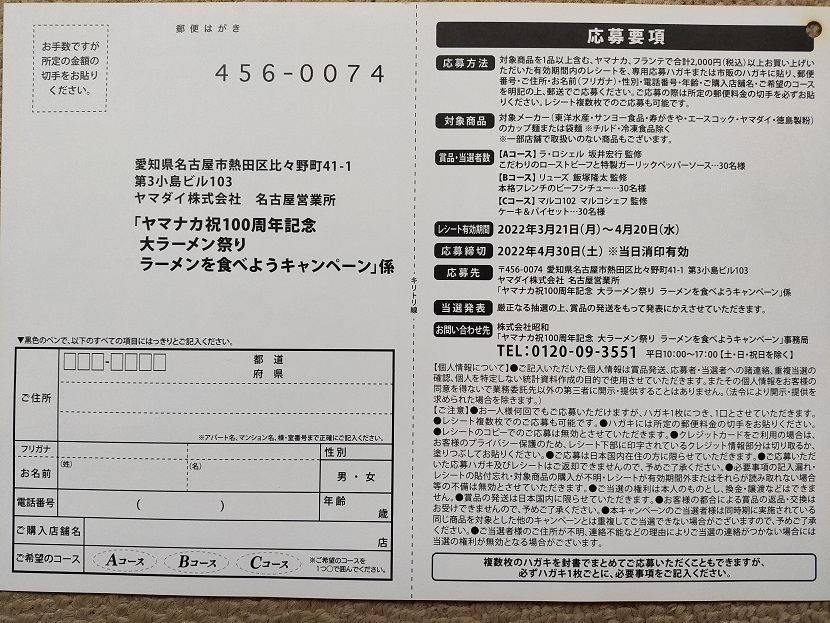 郵便はがき
お手数ですが
所定の金額の
切手をお貼り
ください。
456-0074
愛知県名古屋市熱田区比々野町41-1
第3小島ビル103
ヤマダイ株式会社 名古屋営業所
「ヤマナカ祝100周年記念
大ラーメン祭り
ラーメンを食べようキャンペーン」係
▼黒色のペンで、以下のすべての項目にはっきりとご記入ください。
ご住所
都道
府県
※アパート名、マンション名、棟・室番号まで正確にご記入ください。
フリガナ
性別
お名前
(姓)
(名)
男・女
電話番号
( )
年齢
歳
ご購入店舗名
店
ご希望のコース
Aコース
Bコース
Cコース
※ご希望のコースを
1つ○で囲んでください。
キリトリ線
応募要項
応募方法
対象商品を1品以上含む、ヤマナカ、フランテで合計2,000円(税込)以上お買い上げい
ただいた有効期間内のレシートを、専用応募ハガキまたは市販のハガキに貼り、郵便
番号・ご住所・お名前(フリガナ)・性別・電話番号・年齢・ご購入店舗名・ご希望のコース
を明記の上、郵送でご応募ください。ご応募の際は所定の郵便料金の切手を必ずお貼
りください。レシート複数枚でのご応募も可能です。
対象商品
対象メーカー(東洋水産・サンヨー食品・寿がきや・エースコック・ヤマダイ・徳島製粉)
のカップ麺または袋麺 ※チルド・冷凍食品除く
※一部店舗で取扱いのない商品もございます。
賞品・当選者数
【Aコース】ラ・ロシェル 坂井宏行 監修
こだわりのローストビーフと特製ガーリックペッパーソース…30名様
【Bコース】リューズ 飯塚隆太 監修
本格フレンチのビーフシチュー…30名様
【Cコース】マルコ102 マルコシェフ 監修
ケーキ&パイセット…30名様
レシート有効期間
2022年3月21日(月)〜4月20日(水)
応募締切
2022年4月30日(土) ※当日消印有効
応募先
〒456-0074 愛知県名古屋市熱田区比々野町41-1 第3小島ビル103
ヤマダイ株式会社 名古屋営業所
「ヤマナカ祝100周年記念 大ラーメン祭り ラーメンを食べようキャンペーン」係
当選発表
厳正なる抽選の上、賞品の発送をもって発表にかえさせていただきます。
お問い合わせ先
株式会社昭和
「ヤマナカ祝100周年記念 大ラーメン祭り ラーメンを食べようキャンペーン」事務局
TEL:0120-09-3551 平日10:00〜17:00【土・日・祝日を除く】
【個人情報について】●ご記入いただいた個人情報は賞品発送、応募者・当選者への諸連絡、重複当選の
確認、個人を特定しない統計資料作成の目的で使用させていただきます。またその個人情報をお客様の
同意を得ないで業務委託先以外の第三者に開示・提供することはありません。(法令により開示・提供を
求められた場合を除きます。)
【ご注意】●お一人様何回でもご応募いただけますが、ハガキ1枚につき、1口とさせていただきます。
●レシート複数枚でのご応募も可能です。●ハガキには所定の郵便料金の切手をお貼りください。
●レシートのコピーでのご応募は無効とさせていただきます。●クレジットカードをご利用の場合は、
お客様のプライバシー保護のため、レシート下部に印字されているクレジット情報部分は切り取るか、
塗りつぶしてお貼りください。●ご応募は日本国内在住の方に限らせていただきます。●ご応募いただ
いた応募ハガキ及びレシートはご返却できませんので、予めご了承ください。●必要事項の記入漏れ・
レシートの貼付忘れ・対象商品の購入が不明・レシートが有効期間外またはそれらが読み取れない場合
等の不備は無効とさせていただきます。●ご当選の権利は本人のものとし、換金・譲渡などはできませ
ん。●賞品の発送は日本国内に限らせていただきます。●お客様の都合による賞品の返品・交換は
お受けできませんので、予めご了承ください。●本キャンペーンのご当選者様は同時期に実施されている
同じ商品を対象とした他のキャンペーンとは重複してご当選できない場合がございますので、予めご了承
ください。●ご当選者様のご住所が不明、連絡不能などの理由によりご当選の連絡がつかない場合には
当選の権利が無効となる場合がございます。
複数枚のハガキを封書でまとめてご応募いただくこともできますが、
必ずハガキ1枚ごとに、必要事項をご記入ください。